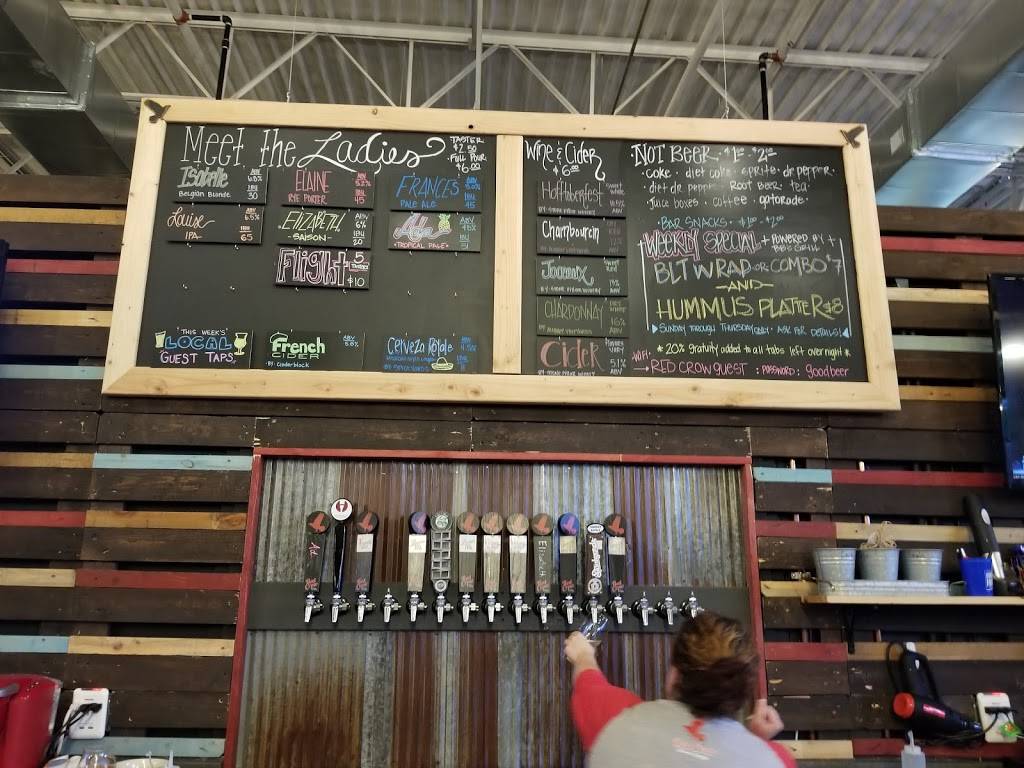 Meet the Ladies
TASTER
$2.50
FULL POUR
$6.00
Isabelle
Belgian Blonde
ABV
6.5%
IBU
30
ELAINE
RYE PORTER
ABV
5.2%
IBU
45
FRANCES
PALE ALE
IBU
45
Louise
IPA
ABV
6.5%
IBU
65
ELIZABETH
-SAISON-
ABV
6%
IBU
20
-TROPICAL PALE-
ABV
IBU
Flight
5
TASTERS
$10
"THIS WEEK'S"
LOCAL
GUEST TAPS
French
CIDER
BY: Cinderblock
ABV
5.8%
Cerveza Royale
ABV
WINE & CIDER
$6.00
Chambourcin
CHARDONNAY
Cider
FLAVORS
VARY
5.1%
ABV
NOT BEER · $1.00 - $2.00
· COKE · DIET COKE · SPRITE · DR PEPPER ·
· DIET DR PEPPER · ROOT BEER · TEA ·
· JUICE BOXES · COFFEE · GATORADE ·
· BAR SNACKS · $1.00 - $2.00
WEEKLY SPECIAL + POWERED BY +
BLT WRAP OR COMBO $7
-AND-
HUMMUS PLATTER $8
SUNDAY THROUGH THURSDAY ONLY · ASK FOR DETAILS!
* 20% gratuity added to all tabs left overnight *
WIFI:
→ RED CROW GUEST : PASSWORD : goodbeer
Elizabeth